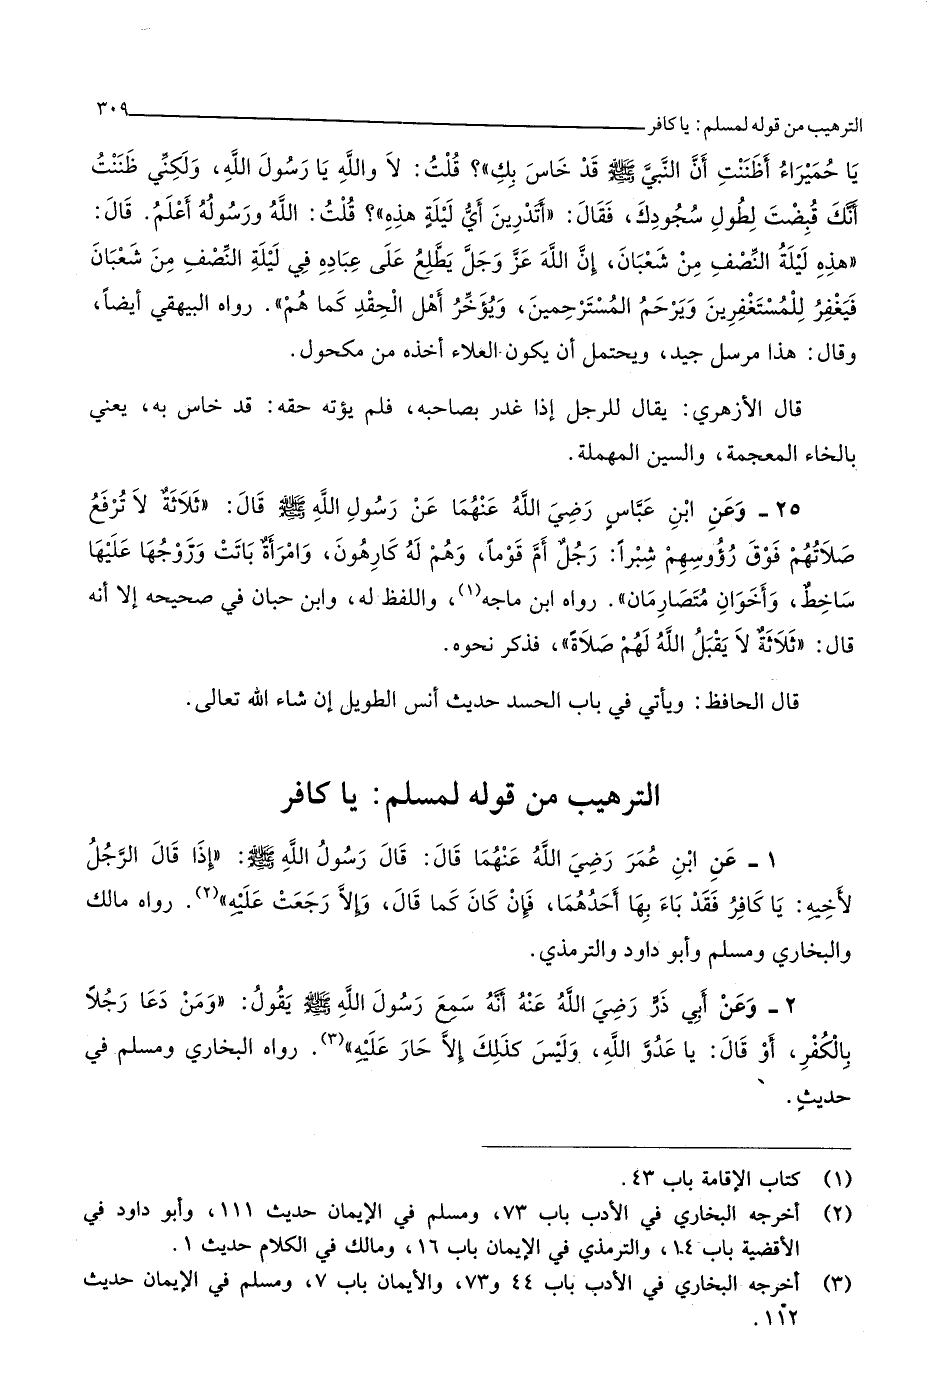 الترهيب من قوله لمسلم: يا كافر ٣٠٩
يَا حُمَيْرَاءُ أَظَنَنْتِ أَنَّ النَّبِيَّ ﷺ قَدْ خَاسَ بِكِ»؟ قُلْتُ: لاَ واللَّهِ يَا رَسُولَ اللَّهِ، وَلَكِنِّي ظَنَنْتُ
أَنَّكَ قُبِضْتَ لِطُولِ سُجُودِكَ، فَقَالَ: «أَتَدْرِينَ أَيُّ لَيْلَةٍ هذِهِ»؟ قُلْتُ: اللَّهُ ورَسُولُهُ أَعْلَمُ. قَالَ:
«هذِهِ لَيْلَةُ النِّصْفِ مِنْ شَعْبَانَ، إِنَّ اللَّهَ عَزَّ وَجَلَّ يَطَّلِعُ عَلَى عِبَادِهِ فِي لَيْلَةِ النِّصْفِ مِنَ شَعْبَانَ
فَيَغْفِرُ لِلْمُسْتَغْفِرِينَ وَيَرْحَمُ المُسْتَرْحِمِينَ، وَيُؤَخِّرُ أَهْلِ الْحِقْدِ كَما هُمْ». رواه البيهقي أيضاً،
وقال: هذا مرسل جيد، ويحتمل أن يكون العلاء أخذه من مكحول.
قال الأزهري: يقال للرجل إذا غدر بصاحبه، فلم يؤته حقه: قد خاس به، يعني
بالخاء المعجمة، والسين المهملة.
٢٥ ـ وَعَنِ ابْنِ عَبَّاسٍ رَضِيَ اللَّهُ عَنْهُمَا عَنْ رَسُولِ اللَّهِ ﷺ قَالَ: «ثَلَاثَةٌ لاَ تُرْفَعُ
صَلَاتُهُمْ فَوْقَ رُؤُوسِهِمْ شِبْراً: رَجُلٌ أَمَّ قَوْماً، وَهُمْ لَهُ كَارِهُونَ، وَامْرَأَةٌ بَاتَتْ وَزَوْجُهَا عَلَيْهَا
سَاخِطٌ، وَأَخَوَانِ مُتَصَارِمَان». رواه ابن ماجه(١)، واللفظ له، وابن حبان في صحيحه إلا أنه
قال: «ثَلَاثَةٌ لاَ يَقْبَلُ اللَّهُ لَهُمْ صَلاَةً»، فذكر نحوه.
قال الحافظ: ويأتي في باب الحسد حديث أنس الطويل إن شاء الله تعالى.
الترهيب من قوله لمسلم: يا كافر
١ ـ عَنِ ابْنِ عُمَرَ رَضِيَ اللَّهُ عَنْهُمَا قَالَ: قَالَ رَسُولُ اللَّهِ ﷺ: «إِذَا قَالَ الرَّجُلُ
لأَخِيهِ: يَا كَافِرُ فَقَدْ بَاءَ بِهَا أَحَدُهُمَا، فَإِنْ كَانَ كَما قَالَ، وَإِلاَّ رَجَعَتْ عَلَيْهِ»(٢). رواه مالك
والبخاري ومسلم وأبو داود والترمذي.
٢ ـ وَعَنْ أَبِي ذَرٍّ رَضِيَ اللَّهُ عَنْهُ أَنَّهُ سَمِعَ رَسُولَ اللَّهِ ﷺ يَقُولُ: «وَمَنْ دَعَا رَجُلاً
بِالْكُفْرِ، أَوْ قَالَ: يا عَدُوَّ اللَّهِ، وَلَيْسَ كذلِكَ إِلاَّ حَارَ عَلَيْهِ»(٣). رواه البخاري ومسلم في
حديثٍ.
(١) كتاب الإقامة باب ٤٣.
(٢) أخرجه البخاري في الأدب باب ٧٣، ومسلم في الإيمان حديث ١١١، وأبو داود في
الأقضية باب ١٠٤، والترمذي في الإيمان باب ١٦، ومالك في الكلام حديث ١.
(٣) أخرجه البخاري في الأدب باب ٤٤ و٧٣، والأيمان باب ٧، ومسلم في الإيمان حديث
١١٢.